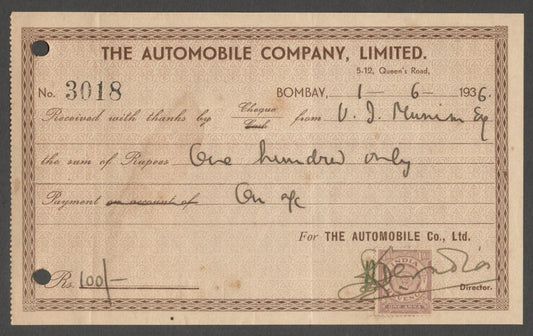 THE AUTOMOBILE COMPANY, LIMITED.
5-12, Queen's Road,
No. 3018 BOMBAY, 1 - 6 - 1936.
Received with thanks by Cheque Cash from V. J. Munim Esq
the sum of Rupees One hundred only
Payment on account of On a/c
For THE AUTOMOBILE Co., Ltd.
INDIA
REVENUE
ONE ANNA
Director.
Rs. 100/-